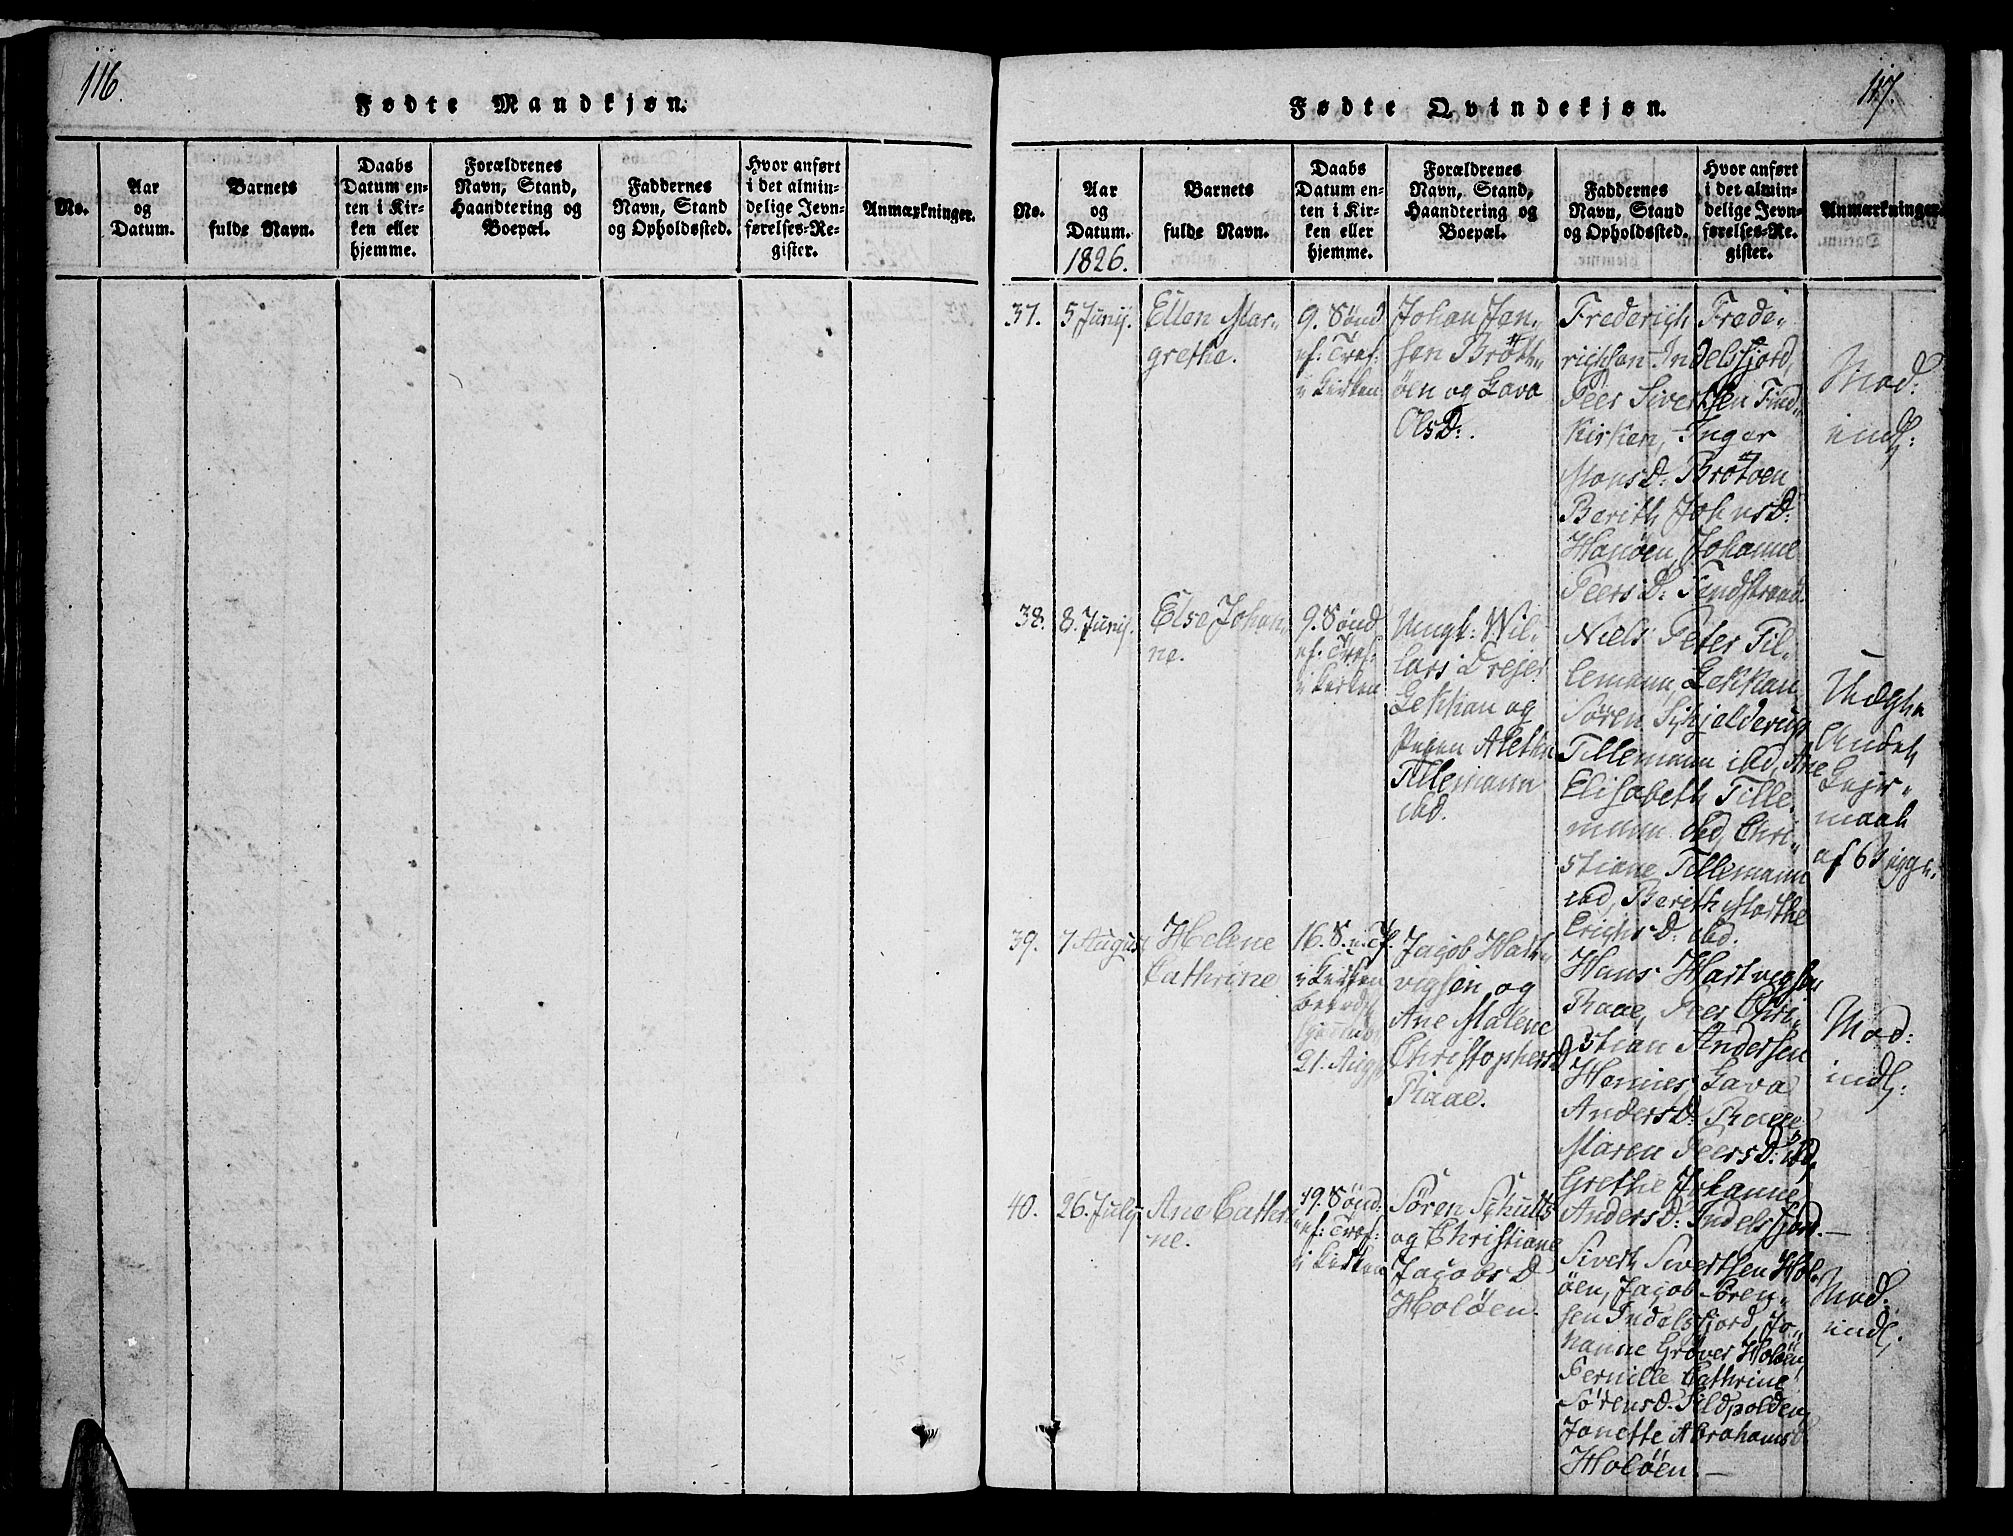 116.
Fødte Mandkjøn.
No.
Aar
og
Datum.
Barnets
fulde Navn.
Daabs
Datum en-
ten i Kir-
ken eller
hjemme.
Forældrenes
Navn, Stand,
Haandtering og
Boepæl.
Faddernes
Navn, Stand
og Opholdssted.
Hvor anført
i det almin-
delige Jevn-
førelses-Re-
gister.
Anmærkninger.
117.
Fødte Qvindekjøn.
No.
Aar
og
Datum.
1826.
Barnets
fulde Navn.
Daabs
Datum en-
ten i Kir-
ken eller
hjemme.
Forældrenes
Navn, Stand,
Haandtering og
Boepæl.
Faddernes
Navn, Stand
og Opholdssted.
Hvor anført
i det almin-
delige Jevn-
førelses-Re-
gister.
Anmærkninger.
37.
5 Junij.
Ellen Mar-
grethe.
9. Sønd
ef: Tref:
i Kirken
Johan Jen-
sen Brøt-
øen og Lava
OlsD:.
Frederich Frede-
richsen Indelsfjord,
Peer Sivertsen Find-
Kirken, Inger
MonsD: Brøtøen
Berith JohnsD:
Hanøen, Johanne
PeersD:
Mod:
indl:
38.
8. Junij.
Else Johan-
ne.
9. Sønd
ef: Tref:
i Kirken
Ungk: Wil-
lars Dreyer
Gekkan og
Pigen Alethe
Tillemann
ibd.
Niels Peter Til-
lemann, Gekkan
Søren Schjelderup
Tillemann ibd, Ane
Elisabeth Tille-
mann ibd, Chri-
stiane Tillemann
ibd, Berith Marthe
ErichsD: ibd.
Uægte
Andet
Leyer-
maal
af
39.
7 August
Helene
Cathrine
16. S. e. Tr.
i Kirken
21. Aug.
Jacob Hart-
vigsen og
Ane Malene
ChristophersD
Raae.
Hans Hartvigsen
Raae, Peer Chri-
stian Andersen
Hemnes, Lava
AndersD: Raae
Maren PeersD: ibd,
Grethe Johanne
AndersD: Indelsfjord.—
Mod:
indl:
40.
26. July
Ane Cathri-
ne.
19. Sønd
ef: Tref:
i Kirken
Søren Schults
og Christiane
JacobsD
Holøen.
Sivert Sivertsen Hol-
øen, Jacob Søren-
sen Indelsfjord, Jo-
hanne Grøver Holøen,
Pernille Cathrine
SørensD. Sildpolden,
Janette AbrahamsD
Holøen.—
Mod:
indl.